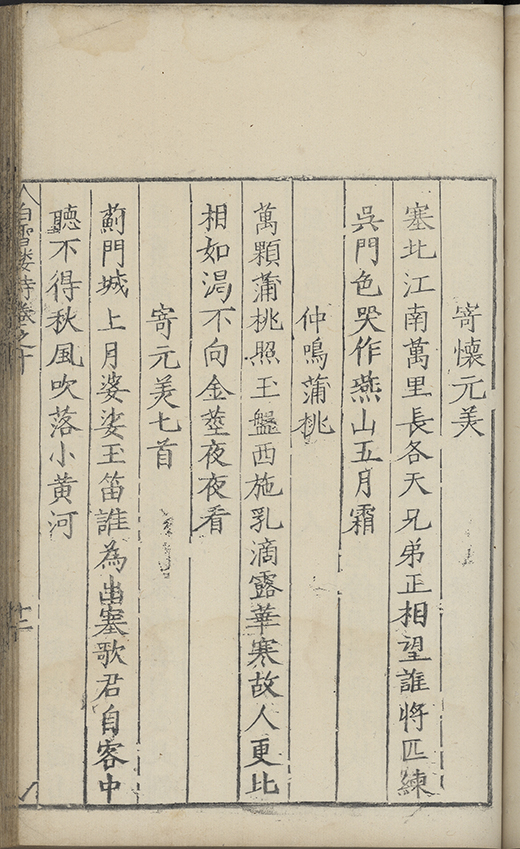 寄懷元美
塞北江南萬里長各天兄弟正相望誰將匹練
吳門色哭作燕山五月霜
仲鳴蒲桃
萬顆蒲桃照玉盤西施乳滴露華寒故人更比
相如渴不向金莖夜夜看
寄元美七首
薊門城上月婆娑玉笛誰為出塞歌君自客中
聽不得秋風吹落小黃河
白雪樓詩卷之十
十二